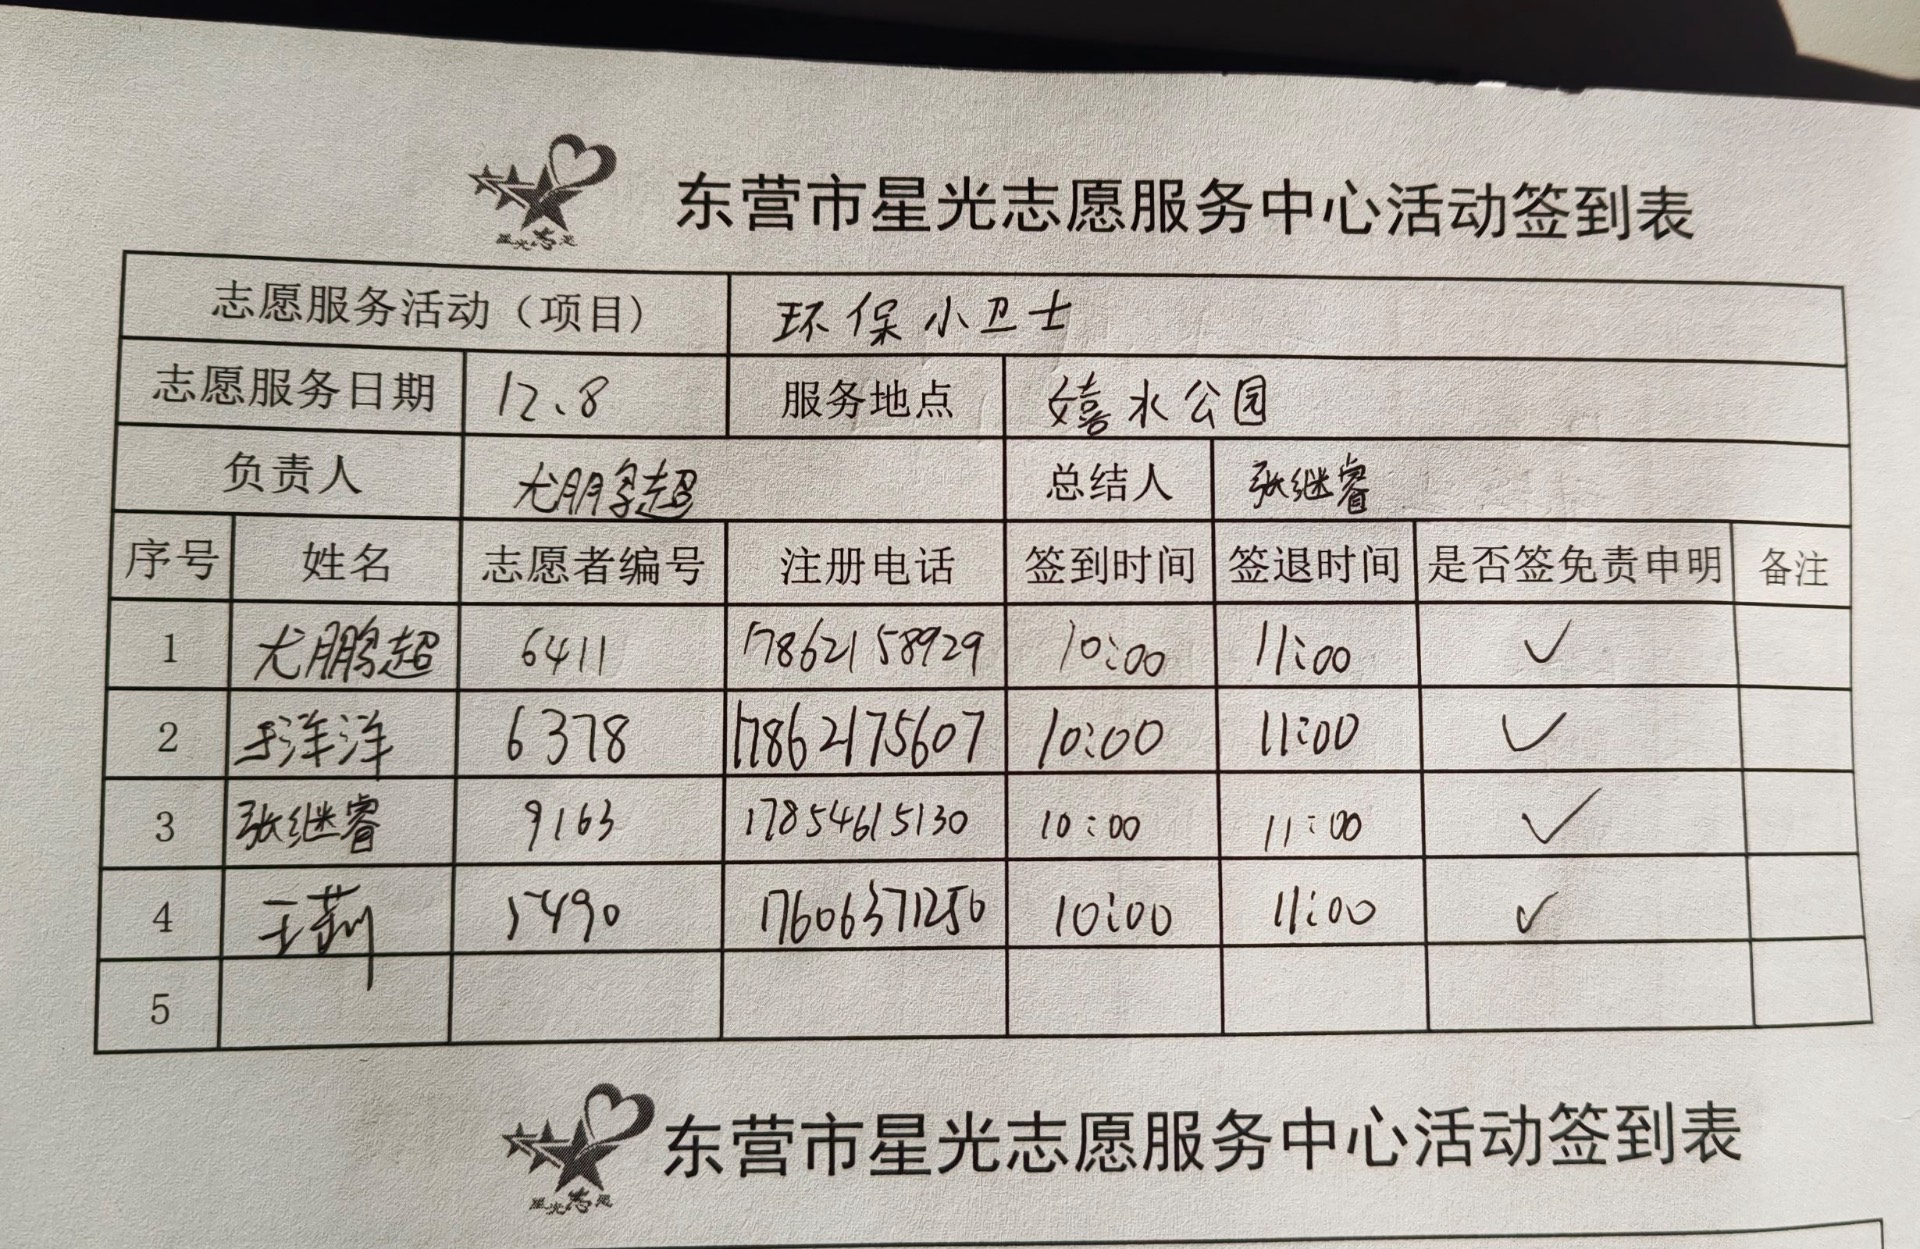 星光志愿
东营市星光志愿服务中心活动签到表
志愿服务活动（项目） 环保小卫士
志愿服务日期 12、8 服务地点 嬉水公园
负责人 尤鹏超 总结人 张继睿
序号 姓名 志愿者编号 注册电话 签到时间 签退时间 是否签免责申明 备注
1 尤鹏超 6411 17862158929 10:00 11:00 ✓
2 于洋洋 6378 17862175607 10:00 11:00 ✓
3 张继睿 9163 17854615130 10:00 11:00 ✓
4 王莉 5490 17606371250 10:00 11:00 ✓
5
星光志愿
东营市星光志愿服务中心活动签到表